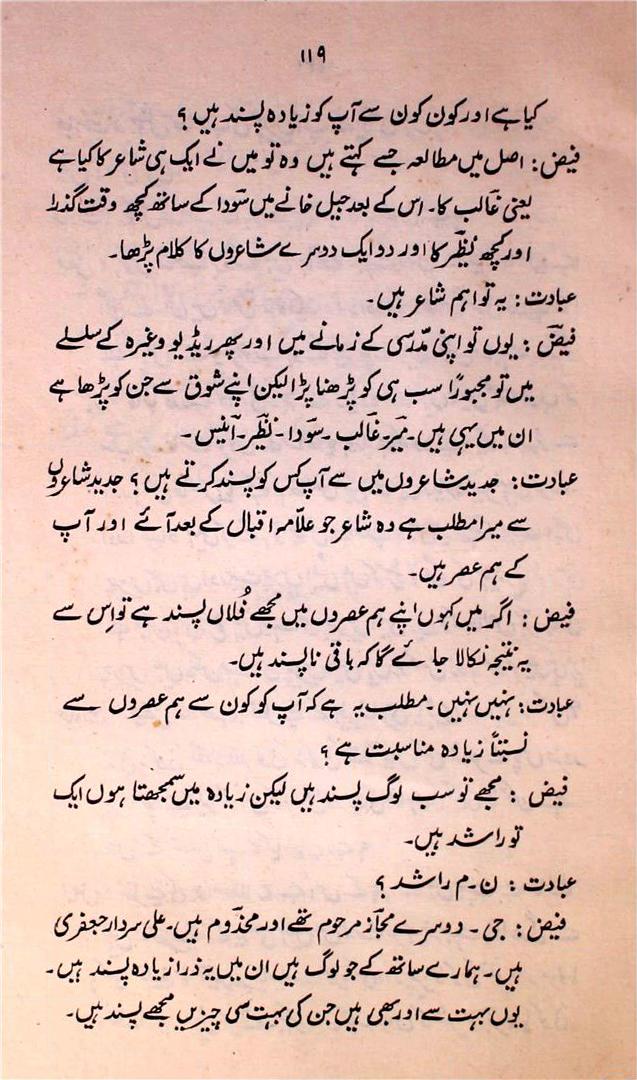 ۱۱۹
کیا ہے اور کون کون سے آپ کو زیادہ پسند ہیں ؟
فیض : اصل میں مطالعہ جسے کہتے ہیں وہ تو میں نے ایک ہی شاعر کا کیا ہے
یعنی غالب کا۔ اس کے بعد جیل خانے میں سودا کے ساتھ کچھ وقت گذرا
اور کچھ نظیر کا اور دو ایک دوسرے شاعروں کا کلام پڑھا۔
عبادت : یہ تو اہم شاعر ہیں۔
فیض : یوں تو اپنی مدّرسی کے زمانے میں اور پھر ریڈیو وغیرہ کے سلسلے
میں تو مجبوراً سب ہی کو پڑھنا پڑا لیکن اپنے شوق سے جن کو پڑھا ہے
ان میں یہی ہیں۔ میر۔ غالب ۔ سودا ۔ نظیر۔ انیس ۔
عبادت : جدید شاعروں میں سے آپ کس کو پسند کرتے ہیں ؟ جدید شاعروں
سے میرا مطلب ہے وہ شاعر جو علّامہ اقبال کے بعد آئے اور آپ
کے ہم عصر ہیں۔
فیض : اگر میں کہوں اپنے ہم عصروں میں مجھے فُلاں پسند ہے تو اِس سے
یہ نتیجہ نکالا جائے گا کہ باقی ناپسند ہیں۔
عبادت : نہیں نہیں ۔ مطلب یہ ہے کہ آپ کو کون سے ہم عصروں سے
نسبتاً زیادہ مناسبت ہے ؟
فیض : مجھے تو سب لوگ پسند ہیں لیکن زیادہ میں سمجھتا ہوں ایک
تو راشد ہیں۔
عبادت : ن ۔ م راشد ؟
فیض : جی ۔ دوسرے مجاز مرحوم تھے اور مخدوم ہیں۔ علی سردار جعفری
ہیں۔ ہمارے ساتھ کے جو لوگ ہیں ان میں یہ ذرا زیادہ پسند ہیں ۔
یوں بہت سے اور بھی ہیں جن کی بہت سی چیزیں مجھے پسند ہیں۔